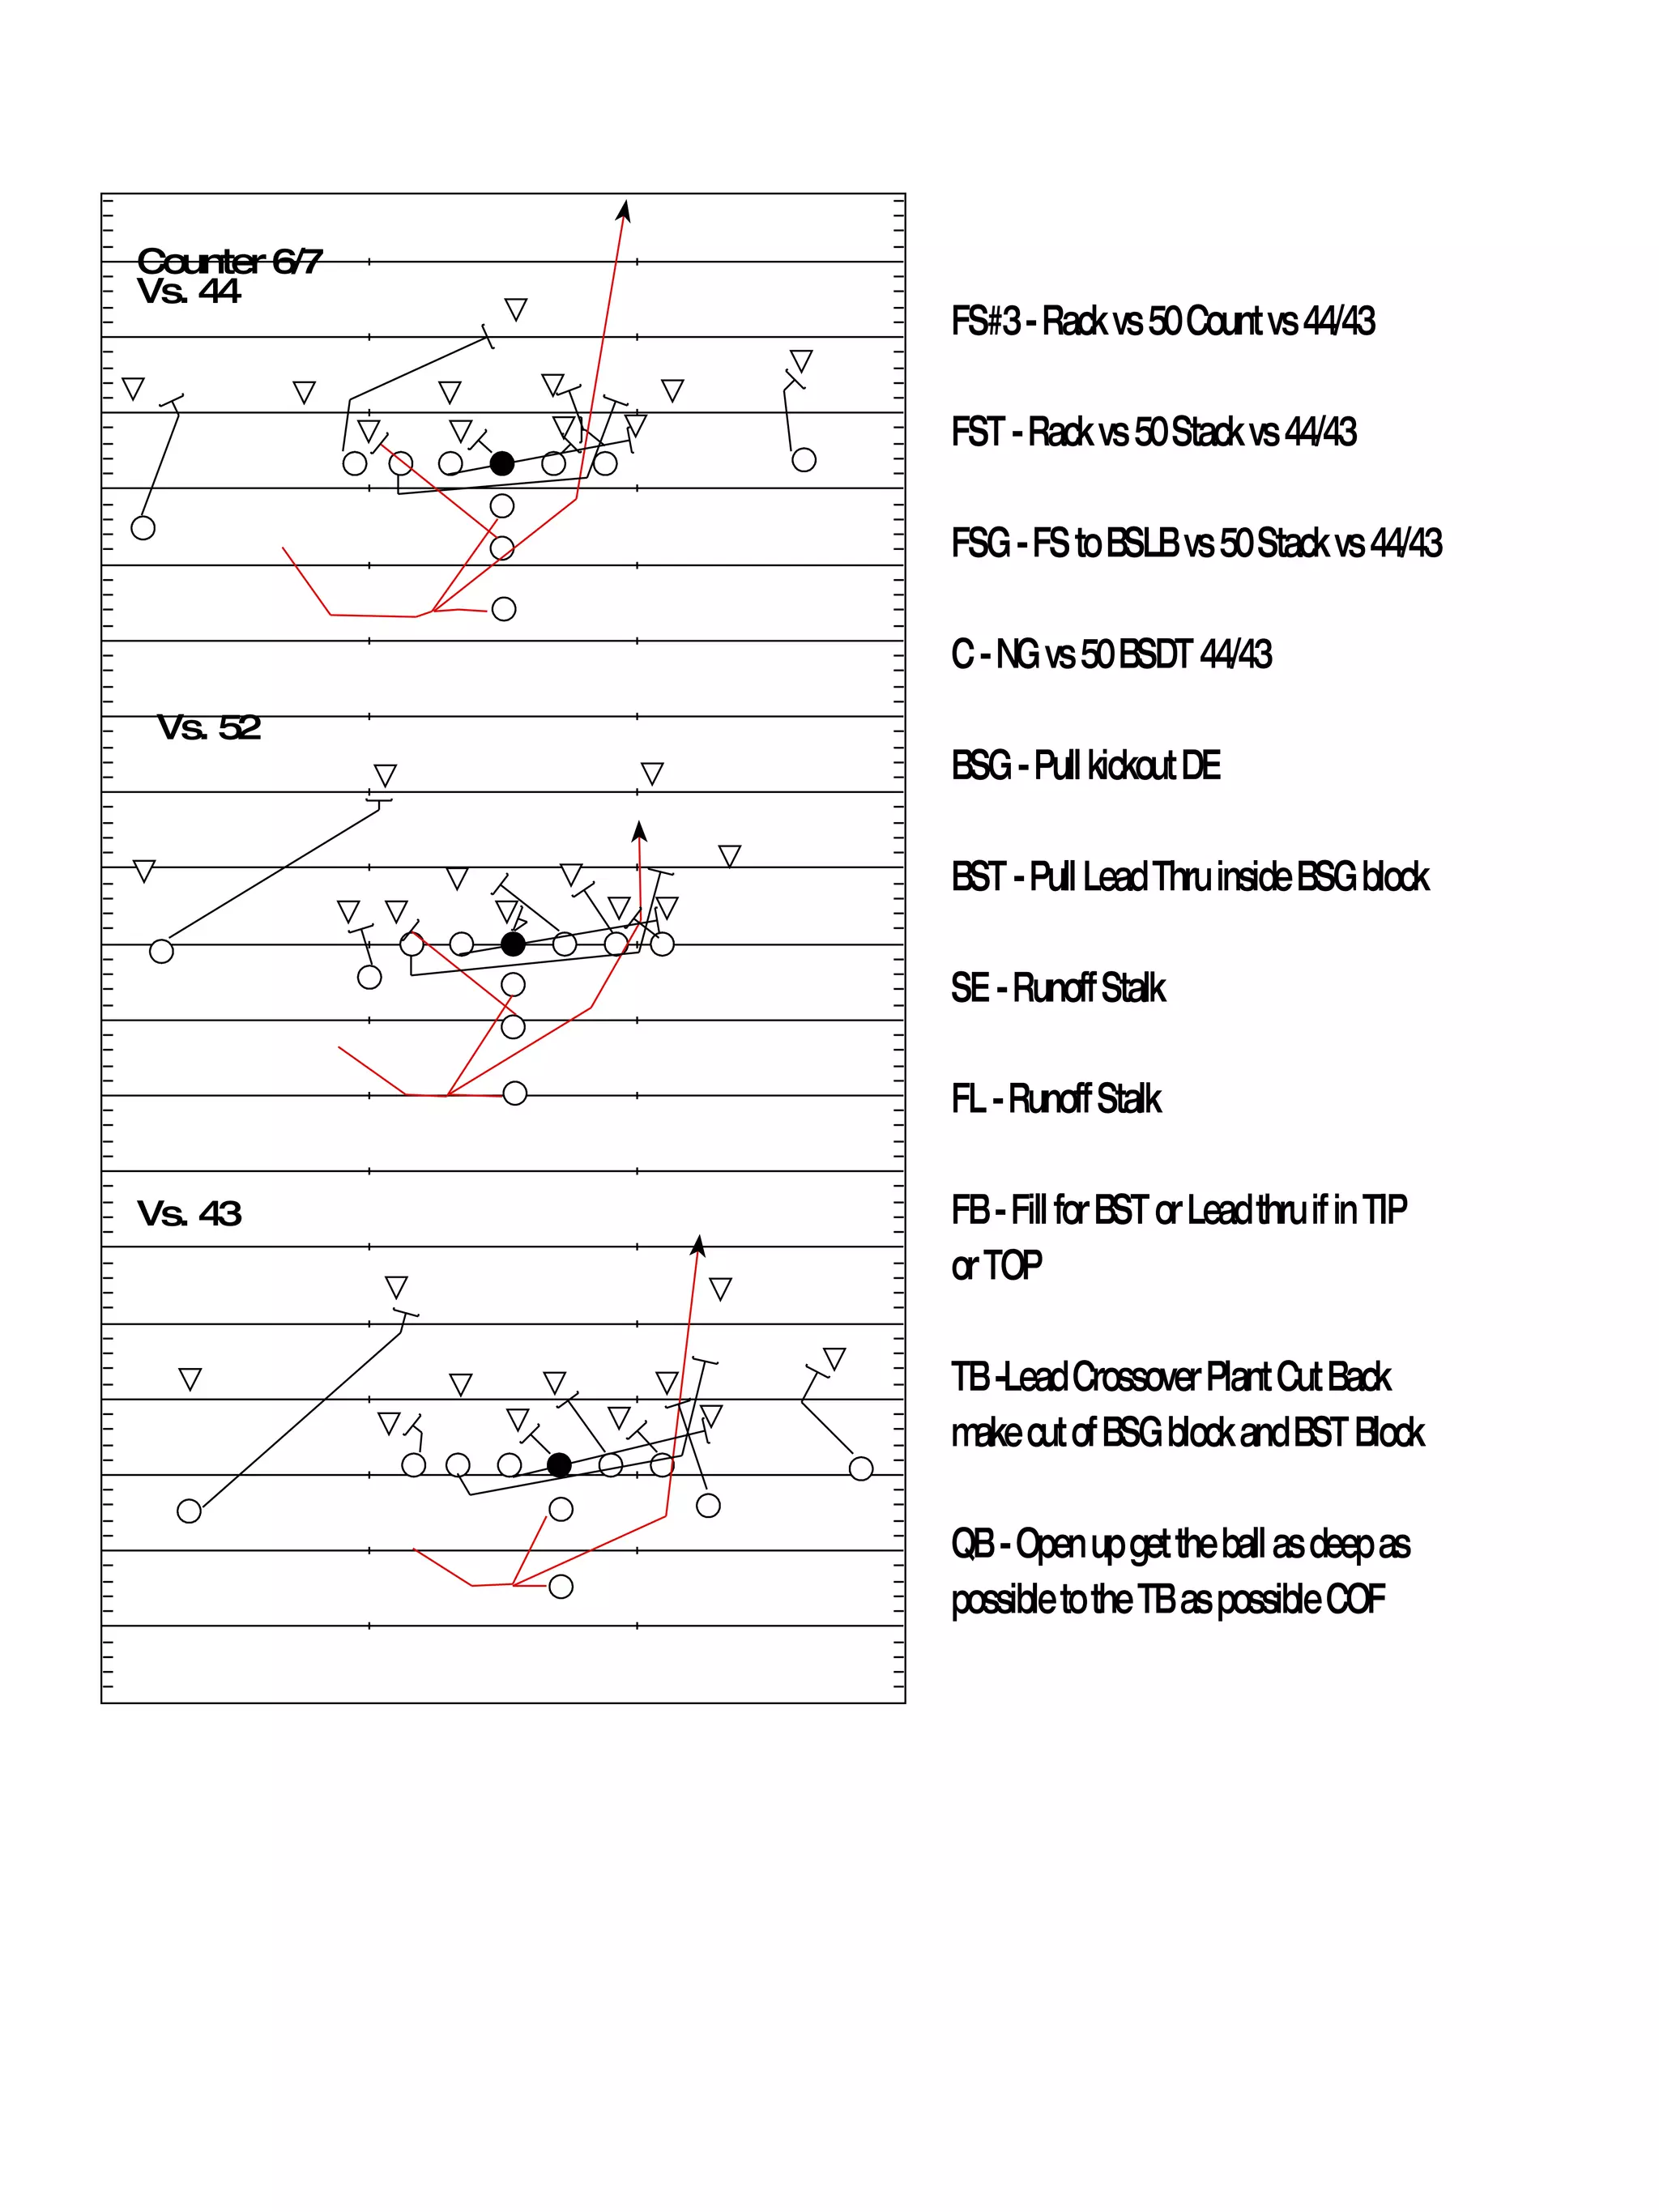 Counter 6/7
Vs. 44
Vs. 52
Vs. 43
FS#3 - Rack vs 50 Count vs 44/43
FST - Rack vs 50 Stack vs 44/43
FSG - FS to BSLB vs 50 Stack vs 44/43
C - NG vs 50 BSDT 44/43
BSG - Pull kickout DE
BST - Pull Lead Thru inside BSG block
SE - Runoff Stalk
FL - Runoff Stalk
FB - Fill for BST or Lead thru if in TIP
or TOP
TB -Lead Crossover Plant Cut Back
make cut of BSG block and BST Block
QB - Open up get the ball as deep as
possible to the TB as possible COF